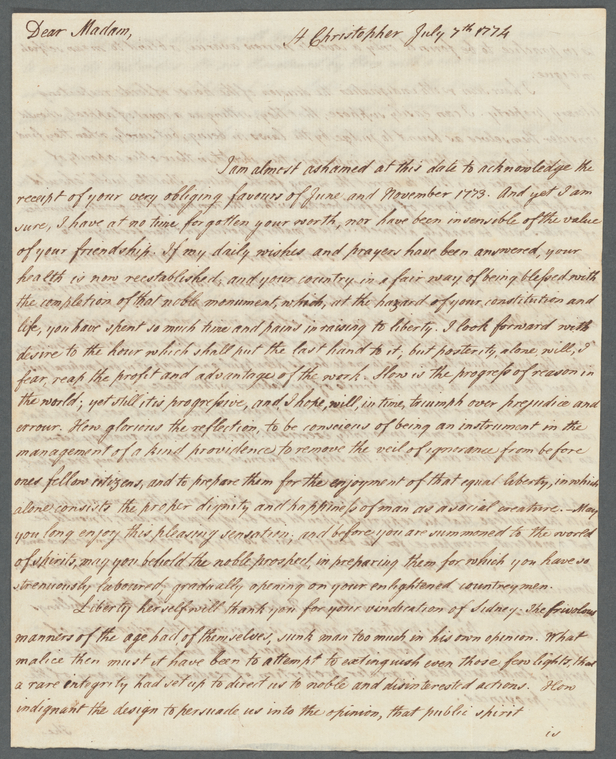 Dear Madam, St Christopher July 7th 1774
I am almost ashamed at this date to acknowledge the
receipt of your very obliging favours of June and November 1773. And yet I am
sure, I have at no time forgotten your worth, nor have been insensible of the value
of your friendship. If my daily wishes and prayers have been answered, your
health is now reestablished; and your country in a fair way of being blessed with
the completion of that noble monument, which, at the hazard of your constitution and
life, you have spent so much time and pains in raising to liberty. I look forward with
desire to the hour which shall put the last hand to it, but posterity alone will, I
fear, reap the profit and advantage of the work. Slow is the progress of reason in
the world; yet still it is progressive, and I hope, will, in time, triumph over prejudice and
errour. How glorious the reflection, to be conscious of being an instrument in the
management of a kind providence to remove the veil of ignorance from before
ones fellow citizens, and to prepare them for the enjoyment of that equal liberty, in which
alone consists the proper dignity and happiness of man as a social creature. – May
you long enjoy this pleasing sensation; and before you are summoned to the world
of spirits, may you behold the noble prospect in preparing them for which you have so
strenuously laboured gradually opening on your enlightened countreymen.
Liberty herself will thank you for your vindication of Sidney: The frivolous
manners of the age had of themselves, sunk man too much in his own opinion. What
malice then must it have been to attempt to extinguish even those few lights, that
a rare integrity had set up to direct us to noble and disinterested actions. How
indignant the design to persuade us into the opinion, that public spirit
is